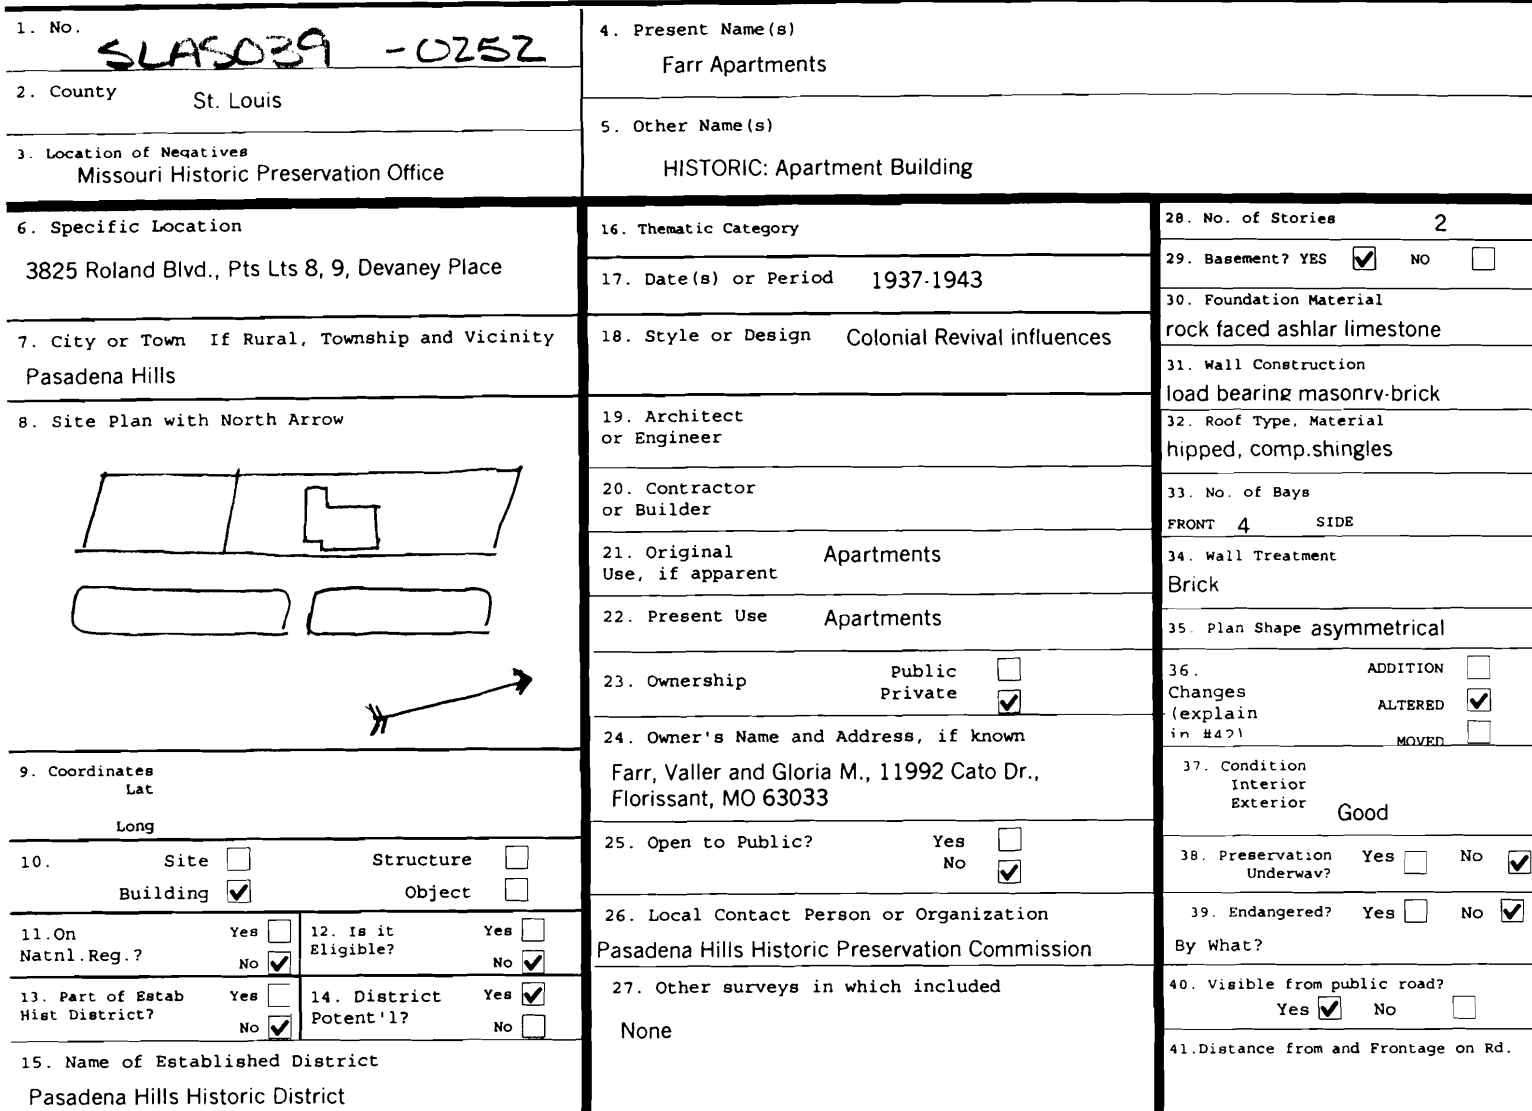 1. No.
SLAS039 -0252
2. County
St. Louis
3. Location of Negatives
Missouri Historic Preservation Office
4. Present Name(s)
Farr Apartments
5. Other Name(s)
HISTORIC: Apartment Building
6. Specific Location
3825 Roland Blvd., Pts Lts 8, 9, Devaney Place
7. City or Town If Rural, Township and Vicinity
Pasadena Hills
8. Site Plan with North Arrow
9. Coordinates
Lat
Long
10. Site Structure
Building Object
11.On Yes
Natnl.Reg.? No
12. Is it Yes
Eligible? No
13. Part of Estab Yes
Hist District? No
14. District Yes
Potent'l? No
15. Name of Established District
Pasadena Hills Historic District
16. Thematic Category
17. Date(s) or Period 1937-1943
18. Style or Design Colonial Revival influences
19. Architect
or Engineer
20. Contractor
or Builder
21. Original Apartments
Use, if apparent
22. Present Use Apartments
23. Ownership Public
Private
24. Owner's Name and Address, if known
Farr, Valler and Gloria M., 11992 Cato Dr.,
Florissant, MO 63033
25. Open to Public? Yes
No
26. Local Contact Person or Organization
Pasadena Hills Historic Preservation Commission
27. Other surveys in which included
None
28. No. of Stories 2
29. Basement? YES NO
30. Foundation Material
rock faced ashlar limestone
31. Wall Construction
load bearing masonry-brick
32. Roof Type, Material
hipped, comp.shingles
33. No. of Bays
FRONT 4 SIDE
34. Wall Treatment
Brick
35. Plan Shape asymmetrical
36. ADDITION
Changes ALTERED
(explain
in #42) MOVED
37. Condition
Interior
Exterior Good
38. Preservation Yes No
Underway?
39. Endangered? Yes No
By What?
40. Visible from public road?
Yes No
41.Distance from and Frontage on Rd.